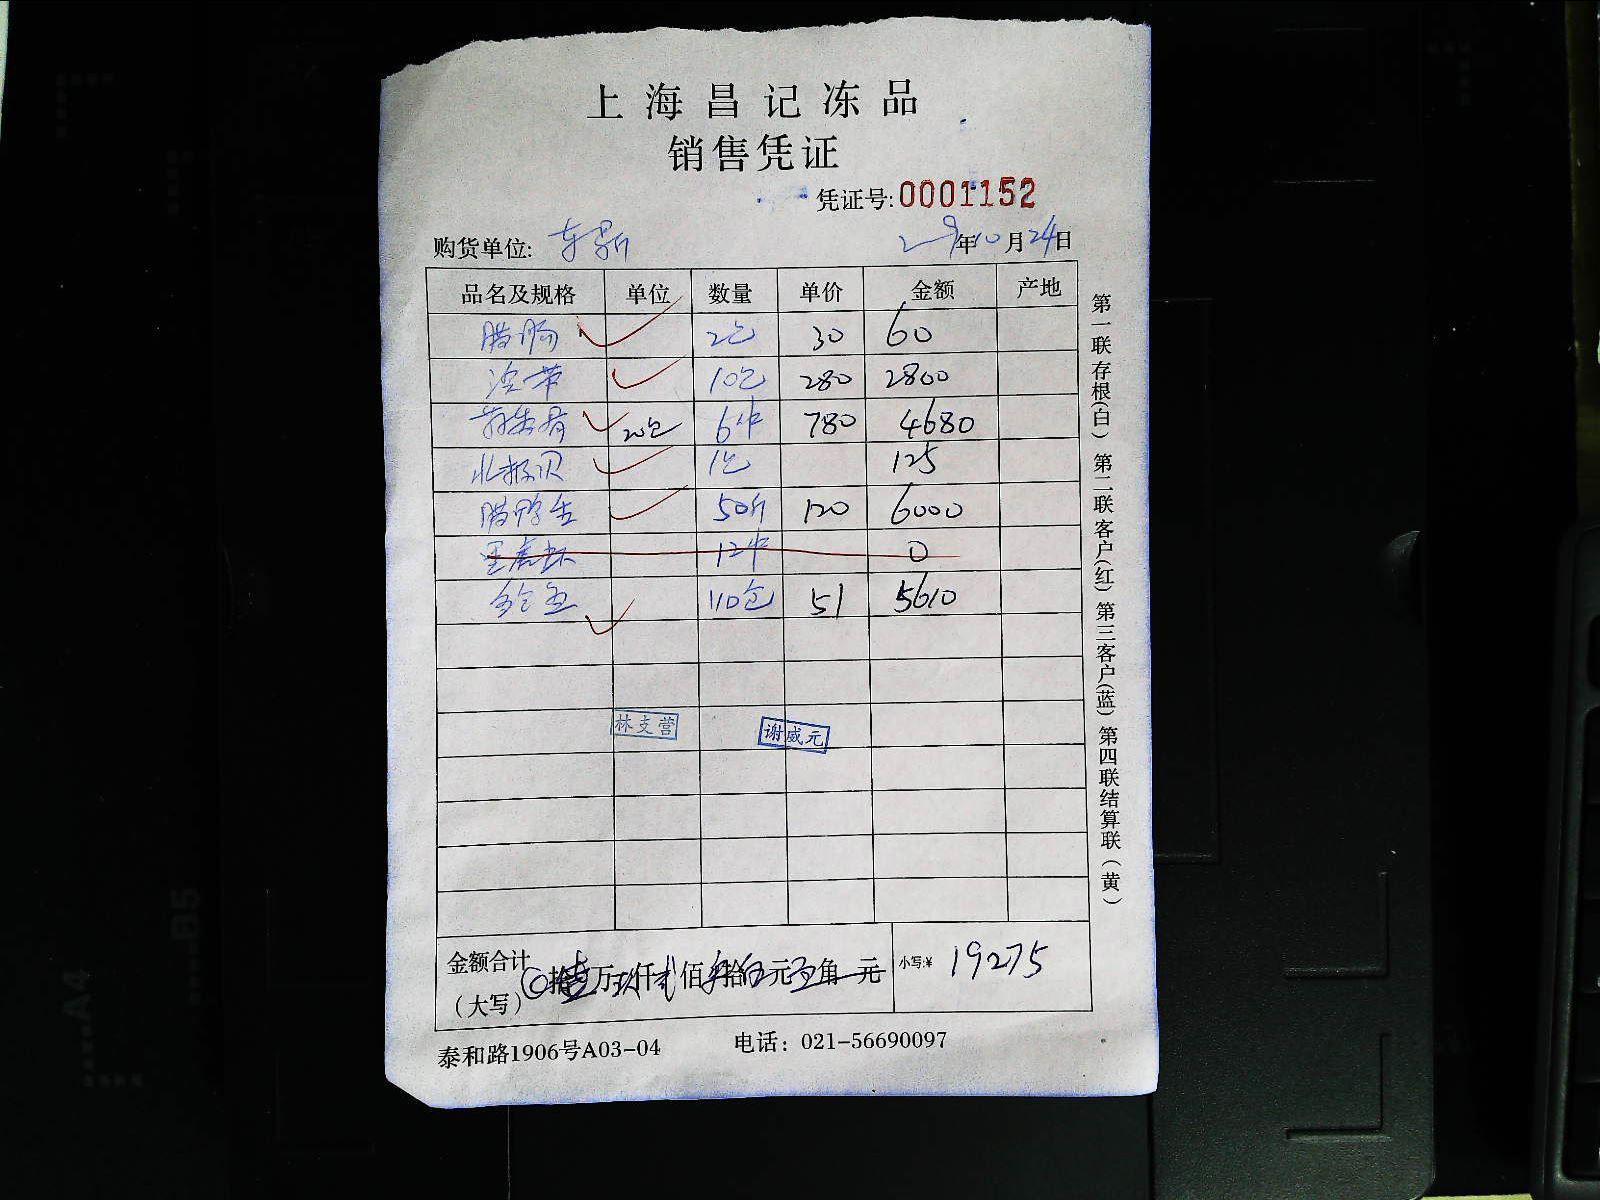 上海昌记冻品
销售凭证
凭证号:0001152
购货单位:
年10月24日
品名及规格 单位 数量 单价 金额 产地
腊肠 2包 30 60
10包 280 2800
20包 6件 780 4680
北极贝 1包 125
腊鸭 50斤 120 6000
12件 0
110包 51 5610
林支营 谢威元
金额合计 拾壹万玖仟贰佰柒拾伍元 角 元
(大写)
小写:¥ 19275
泰和路1906号A03-04 电话: 021-56690097
第一联存根(白) 第二联客户(红) 第三客户(蓝) 第四联结算联(黄)
A4
B5